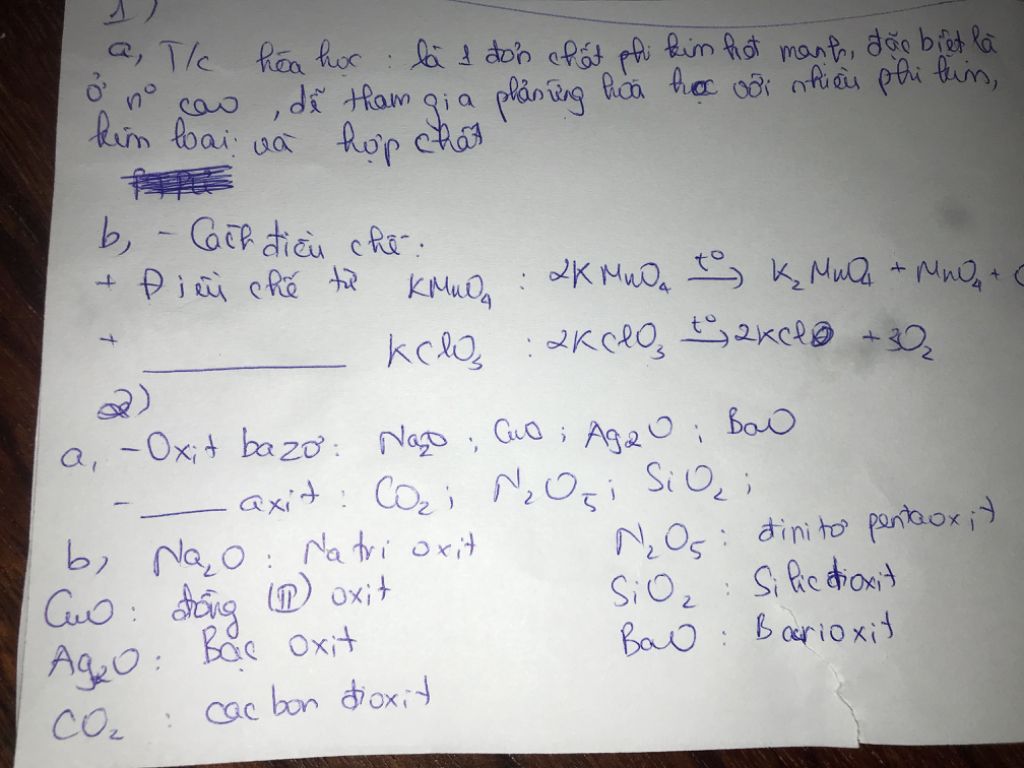 1)
a, T/c hóa học : là 1 đơn chất phi kim hđt mạnh, đặc biệt là
ở n° cao , dễ tham gia phản ứng hoá học với nhiều phi kim,
kim loại và hợp chất
b, - Cách điều chế :
+ Điều chế từ KMnO₄ : 2KMnO₄ —t°→ K₂MnO₄ + MnO₄ +
+ ________ KClO₃ : 2KClO₃ —t°→ 2KCl + 3O₂
2)
a, - Oxit bazơ : Na₂O ; CuO ; Ag₂O ; BaO
- ____ axit : CO₂ ; N₂O₅ ; SiO₂ ;
b, Na₂O : Natri oxit
CuO : đồng (II) oxit
Ag₂O : Bạc oxit
CO₂ : cacbon đioxit
N₂O₅ : đinitơ pentaoxit
SiO₂ : Silic đioxit
BaO : Bari oxit